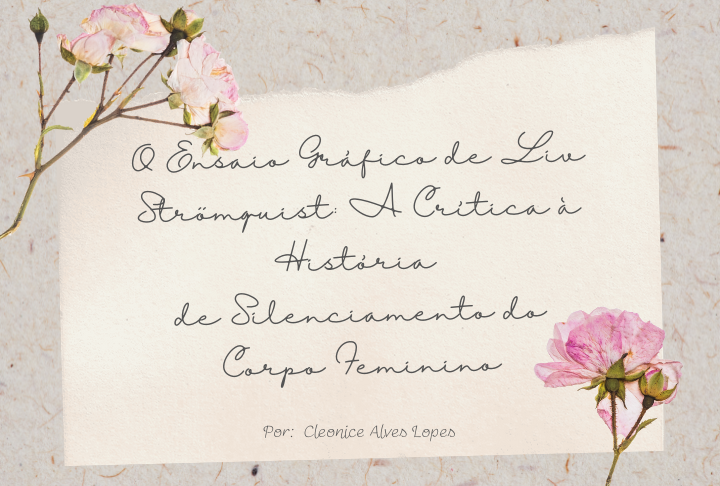 O Ensaio Gráfico de Liv
Strömquist: A Crítica à
História
de Silenciamento do
Corpo Feminino
Por: Cleonice Alves Lopes